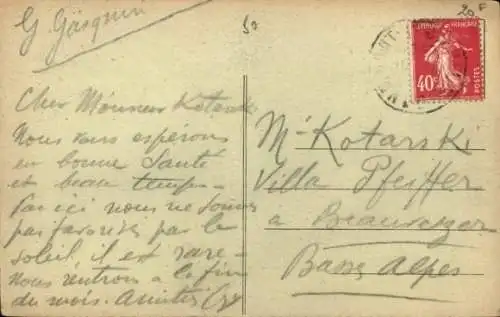 G Gasquin
50
20 F
REPUBLIQUE FRANCAISE
40c
POSTES
Cher Monsieur Kotarski
Nous vous espérons
en bonne Santé
et beau temps -
Par ici nous ne sommes
pas favorisés par le
soleil, il est rare -
Nous rentrons à la fin
du mois. Amitiés
Mr Kotarski
Villa Pfeiffer
à Beauvezer
Basses Alpes